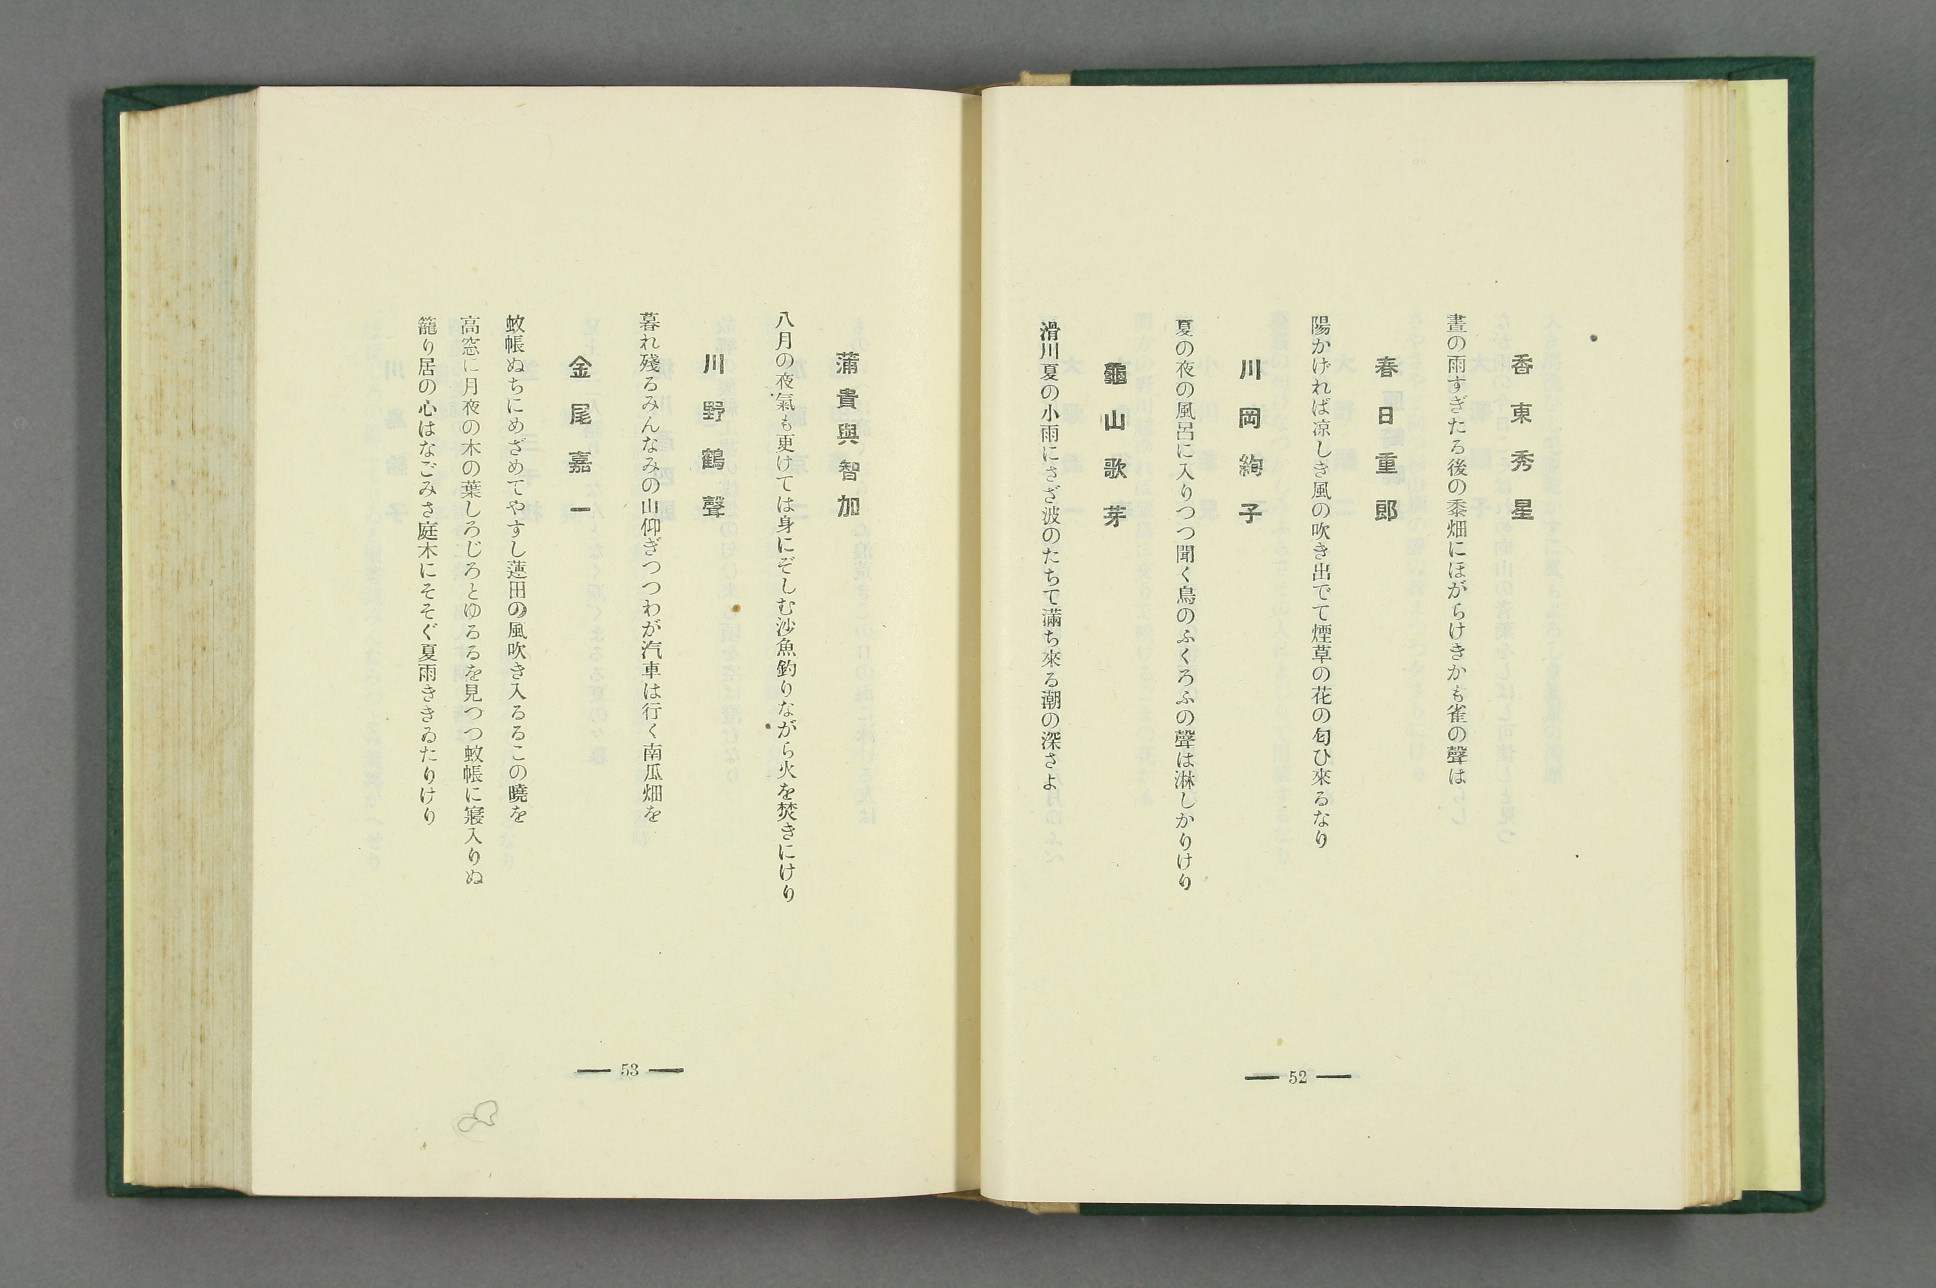 香東秀星
晝の雨すぎたる後の黍畑にほがらけきかも雀の聲は
春日重郎
陽かげれば凉しき風の吹き出でて煙草の花の匂ひ來るなり
川岡絢子
夏の夜の風呂に入りつつ聞く鳥のふくろふの聲は淋しかりけり
龜山歌芽
滑川夏の小雨にさざ波のたちて滿ち來る潮の深さよ
52
蒲貴與智加
八月の夜氣も更けては身にぞしむ沙魚釣りながら火を焚きにけり
川野鶴聲
暮れ殘るみんなみの山仰ぎつつわが汽車は行く南瓜畑を
金尾嘉一
蚊帳ぬちにめざめてやすし蓮田の風吹き入るるこの曉を
高窓に月夜の木の葉しろじろとゆるるを見つつ蚊帳に寢入りぬ
籠り居の心はなごみさ庭木にそそぐ夏雨ききゐたりけり
53